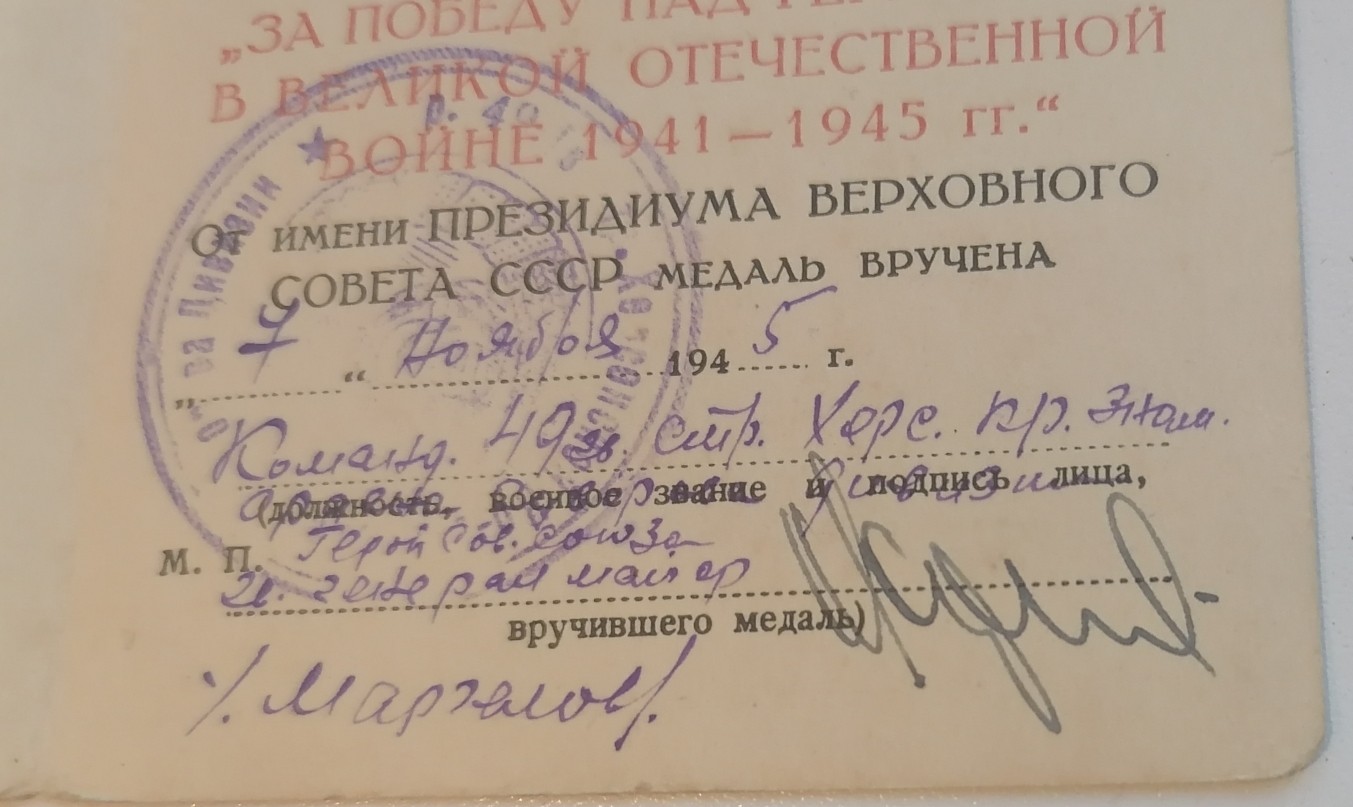 „ЗА ПОБЕДУ НАД ГЕР
В ВЕЛИКОЙ ОТЕЧЕСТВЕННОЙ
ВОЙНЕ 1941—1945 гг.“
ОТ ИМЕНИ ПРЕЗИДИУМА ВЕРХОВНОГО
СОВЕТА СССР МЕДАЛЬ ВРУЧЕНА
„ 7 “ Ноября 1945 г.
Команд. 49 гв. стр. Херс. кр. Знам.
(должность, военное звание и подпись лица,
ордена Суворова дивизии
Герой Сов. Союза
М. П.
гв. генерал майор
вручившего медаль)
/. Маргелов/.